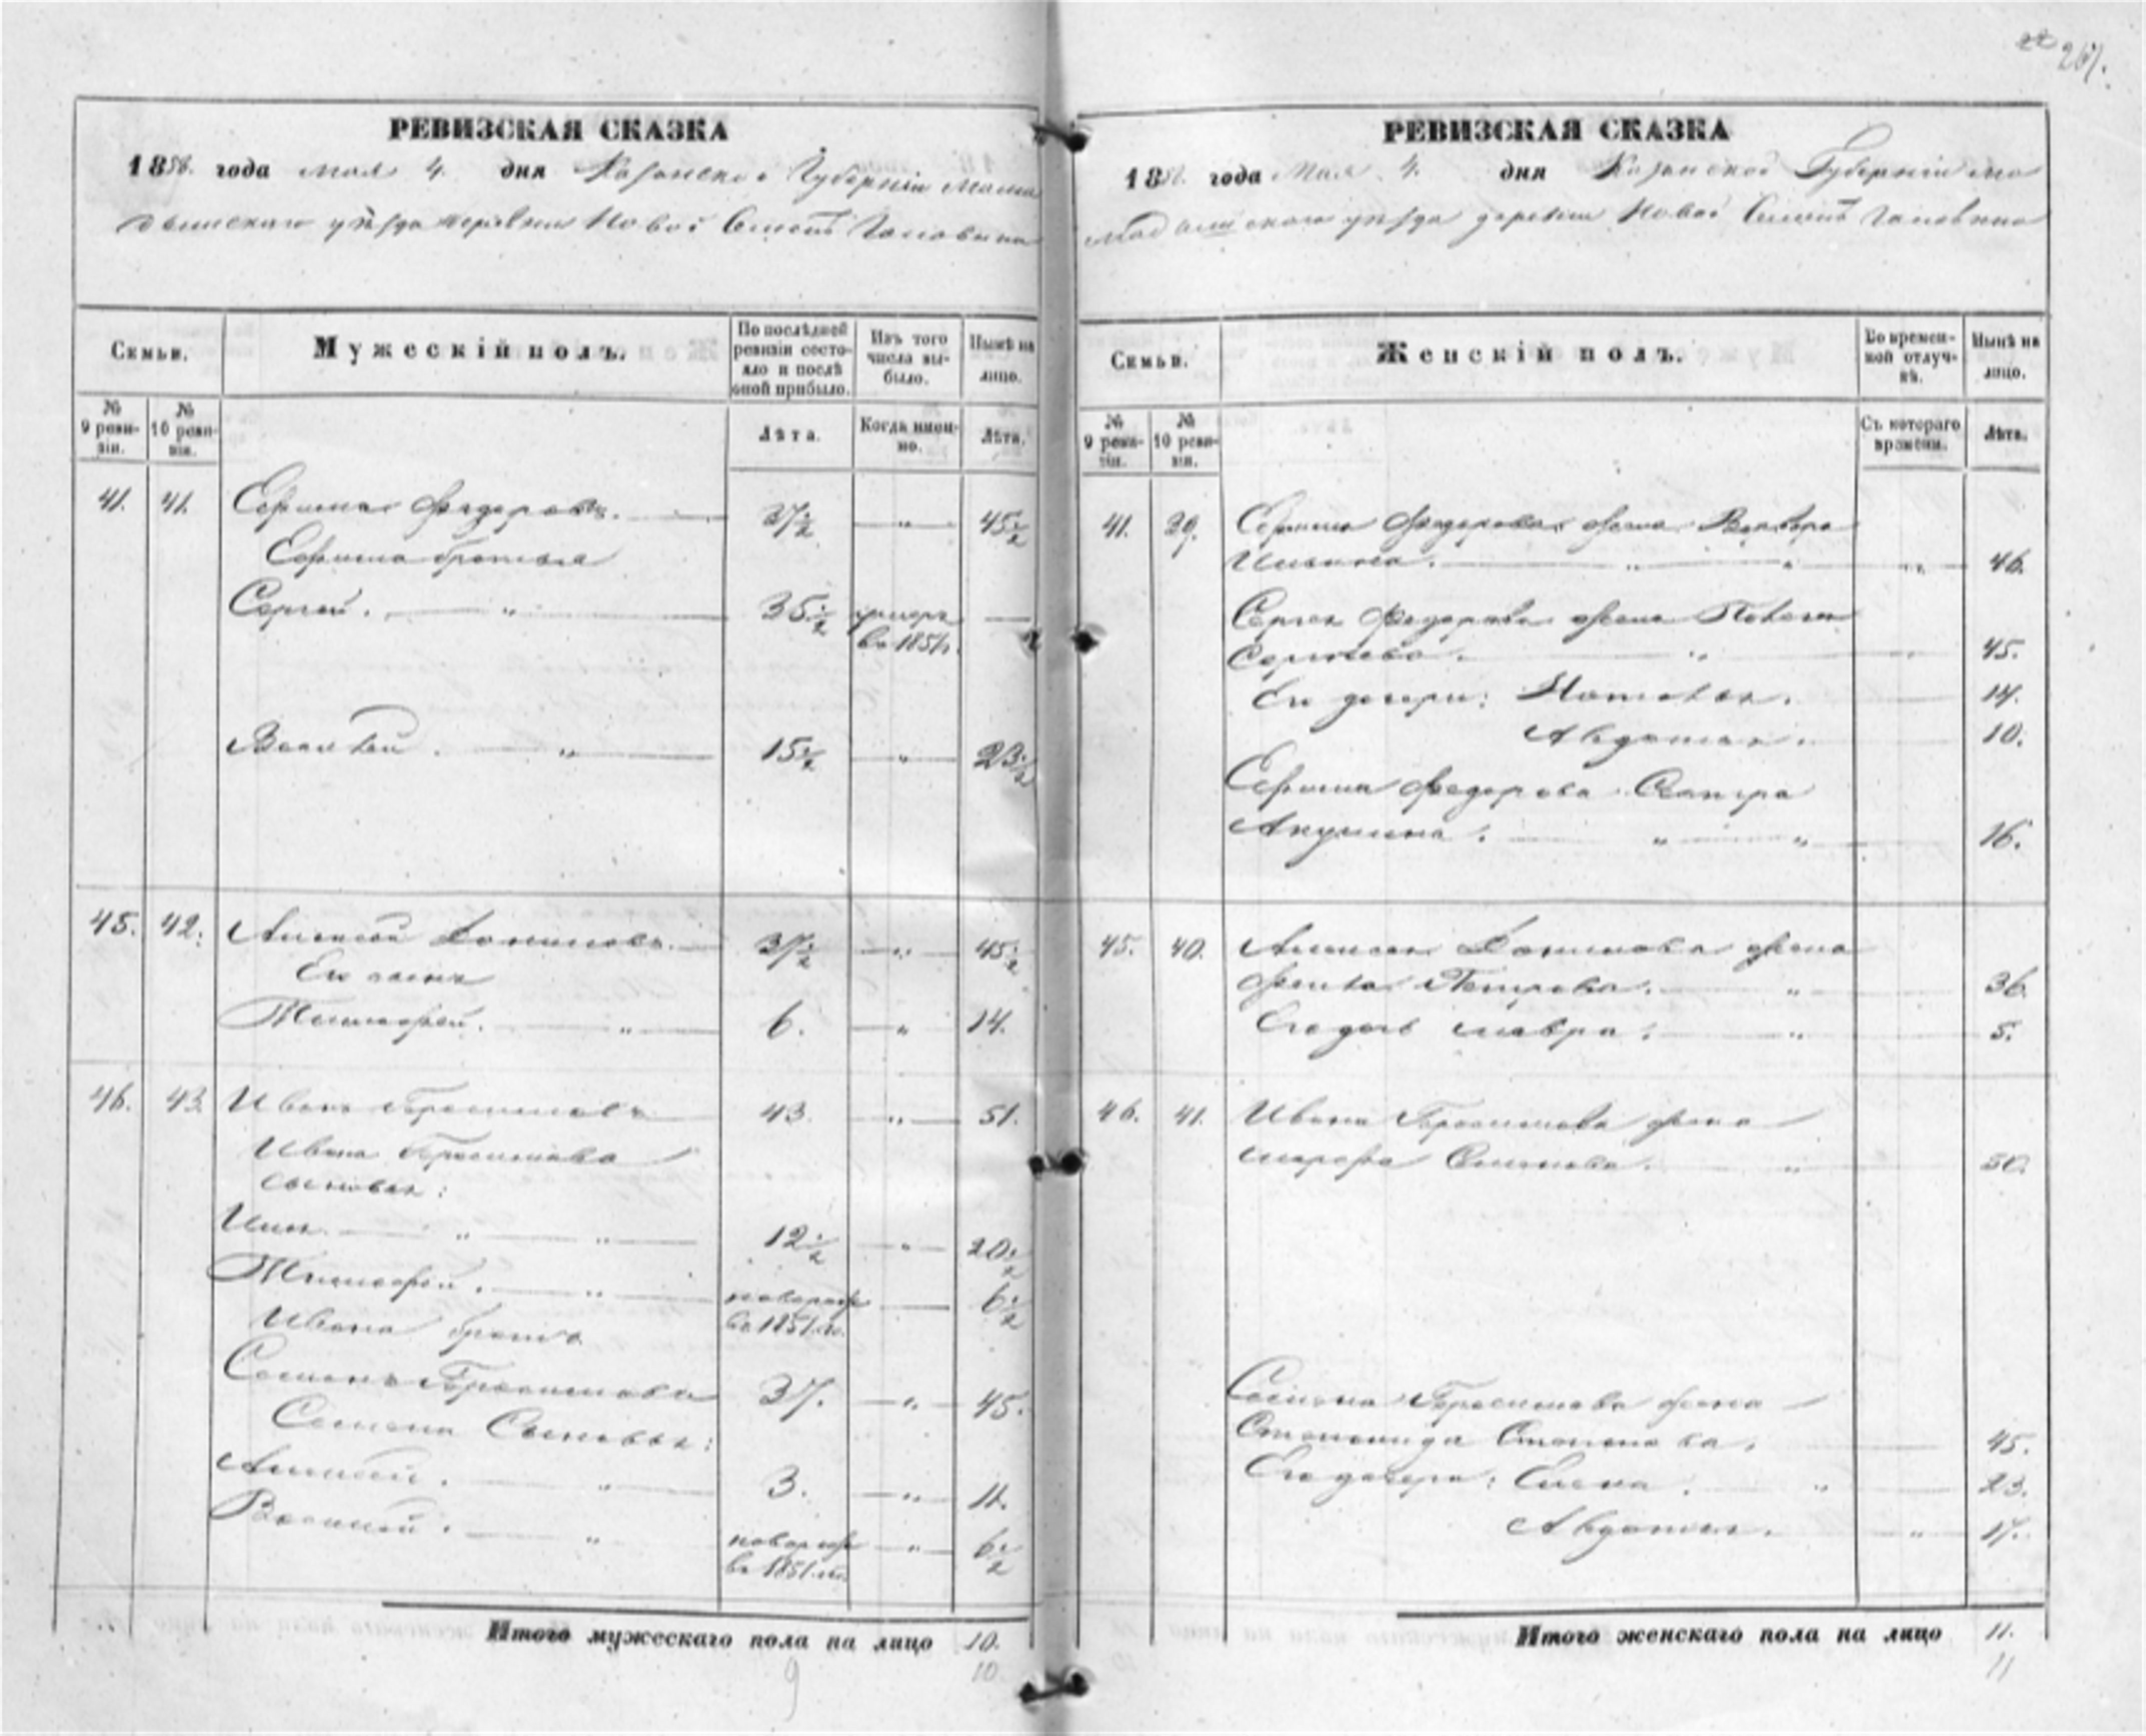 РЕВИЗСКАЯ СКАЗКА
1858. года мая 4. дня Казанской Губернiи Мама
дышскаго уѣзда деревни Новой
Семьи.
Мужескiй полъ.
По послѣдней ревизiи состояло и послѣ оной прибыло.
Изъ того числа выбыло.
Нынѣ на лицо.
№ 9 ревизiи.
№ 10 ревизiи.
Лѣта.
Когда именно.
Лѣта.
41. 41. Ефимъ Федоровъ. 37 1/2 " 45 1/2
Ефима братья
Сергей. " 35 1/2 умеръ
въ 1851.
15 1/2 " 23 1/2
45. 42. Алексей 37 1/2 " 45 1/2
Его сынъ
Тимофей. " 6. " 14.
46. 43. Иванъ Герасимовъ 43. " 51.
Ивана Герасимова
сыновья:
" " 12 1/2 " 20 1/2
Тимофей. " новорож
въ 1851. 6 1/2
Ивана братъ
Семенъ Герасимовъ 37. " 45.
Семена Сыновья:
Алексей. " 3. " 11.
Василий. " новорож
въ 1851. " 6 1/2
Итого мужескаго пола на лицо 10.
10
9
РЕВИЗСКАЯ СКАЗКА
1858. года Мая 4. дня Казанской Губернiи Ма
мадышскаго уѣзда деревни Новой
Семьи.
Женскiй полъ.
Во временной отлучкѣ.
Нынѣ на лицо.
№ 9 ревизiи.
№ 10 ревизiи.
Съ котораго времени.
Лѣта.
41. 39. Ефима Федорова жена Варвара
Ильина. " " " 46.
Сергея Федорова жена
Сергѣева. " 45.
Его дочери: Наталья. 14.
Авдотья. 10.
Ефима Федорова Сестра
Акулина. " " 16.
45. 40. Алексея жена
Фекла Петрова. " 36.
Его дочь Мавра. " 5.
46. 41. Ивана Герасимова жена
Марфа Семенова. " 50.
Семена Герасимова жена
Степанида Степанова. 45.
Его дочери: Елена. " 23.
Авдотья. " 17.
Итого женскаго пола на лицо 11.
11